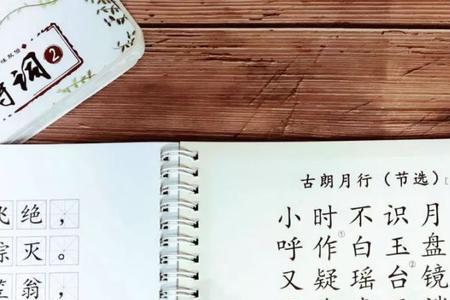 词②
绝，
灭。
翁，
古朗月行（节选）
小时不识月
呼作①白玉盘
又疑瑶台②镜